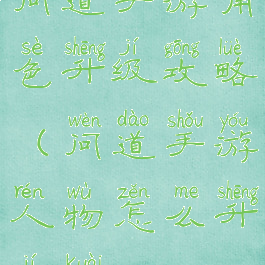 问道手游角
sè shēng jí gōng lüè
色升级攻略
wèn dào shǒu yóu
（问道手游
rén wù zěn me shēng
人物怎么升
jí kuài